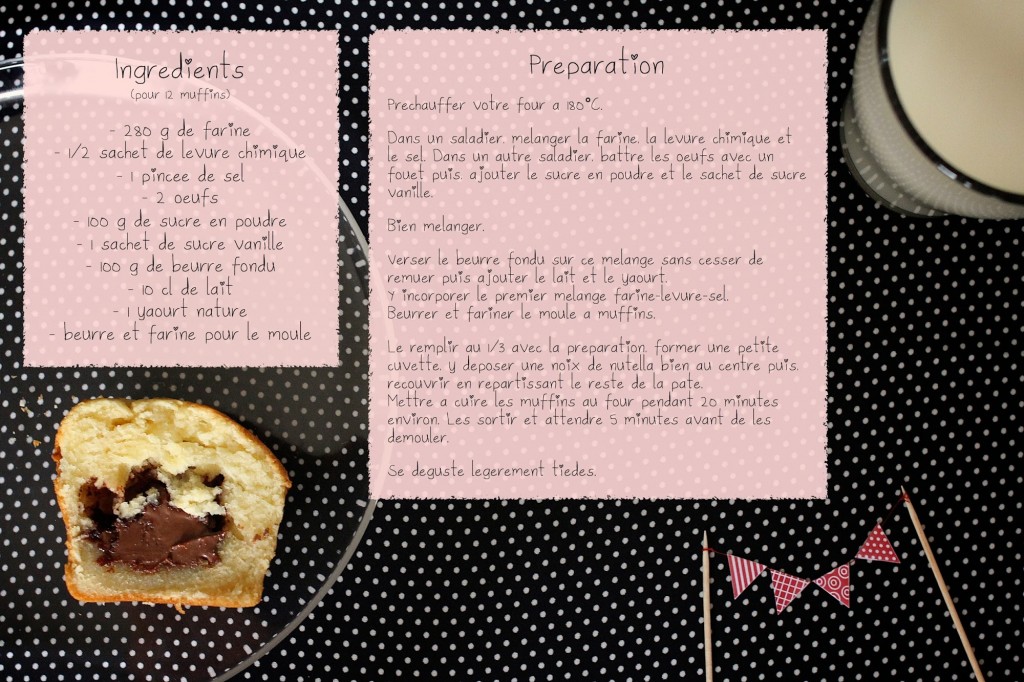 Ingredients
(pour 12 muffins)
- 280 g de farine
- 1/2 sachet de levure chimique
- 1 pincee de sel
- 2 oeufs
- 100 g de sucre en poudre
- 1 sachet de sucre vanille
- 100 g de beurre fondu
- 10 cl de lait
- 1 yaourt nature
- beurre et farine pour le moule
Preparation
Prechauffer votre four a 180°C.
Dans un saladier, melanger la farine, la levure chimique et
le sel. Dans un autre saladier, battre les oeufs avec un
fouet puis, ajouter le sucre en poudre et le sachet de sucre
vanille.
Bien melanger.
Verser le beurre fondu sur ce melange sans cesser de
remuer puis ajouter le lait et le yaourt.
Y incorporer le premier melange farine-levure-sel.
Beurrer et fariner le moule a muffins.
Le remplir au 1/3 avec la preparation, former une petite
cuvette, y deposer une noix de nutella bien au centre puis,
recouvrir en repartissant le reste de la pate.
Mettre a cuire les muffins au four pendant 20 minutes
environ. Les sortir et attendre 5 minutes avant de les
demouler.
Se deguste legerement tiedes.